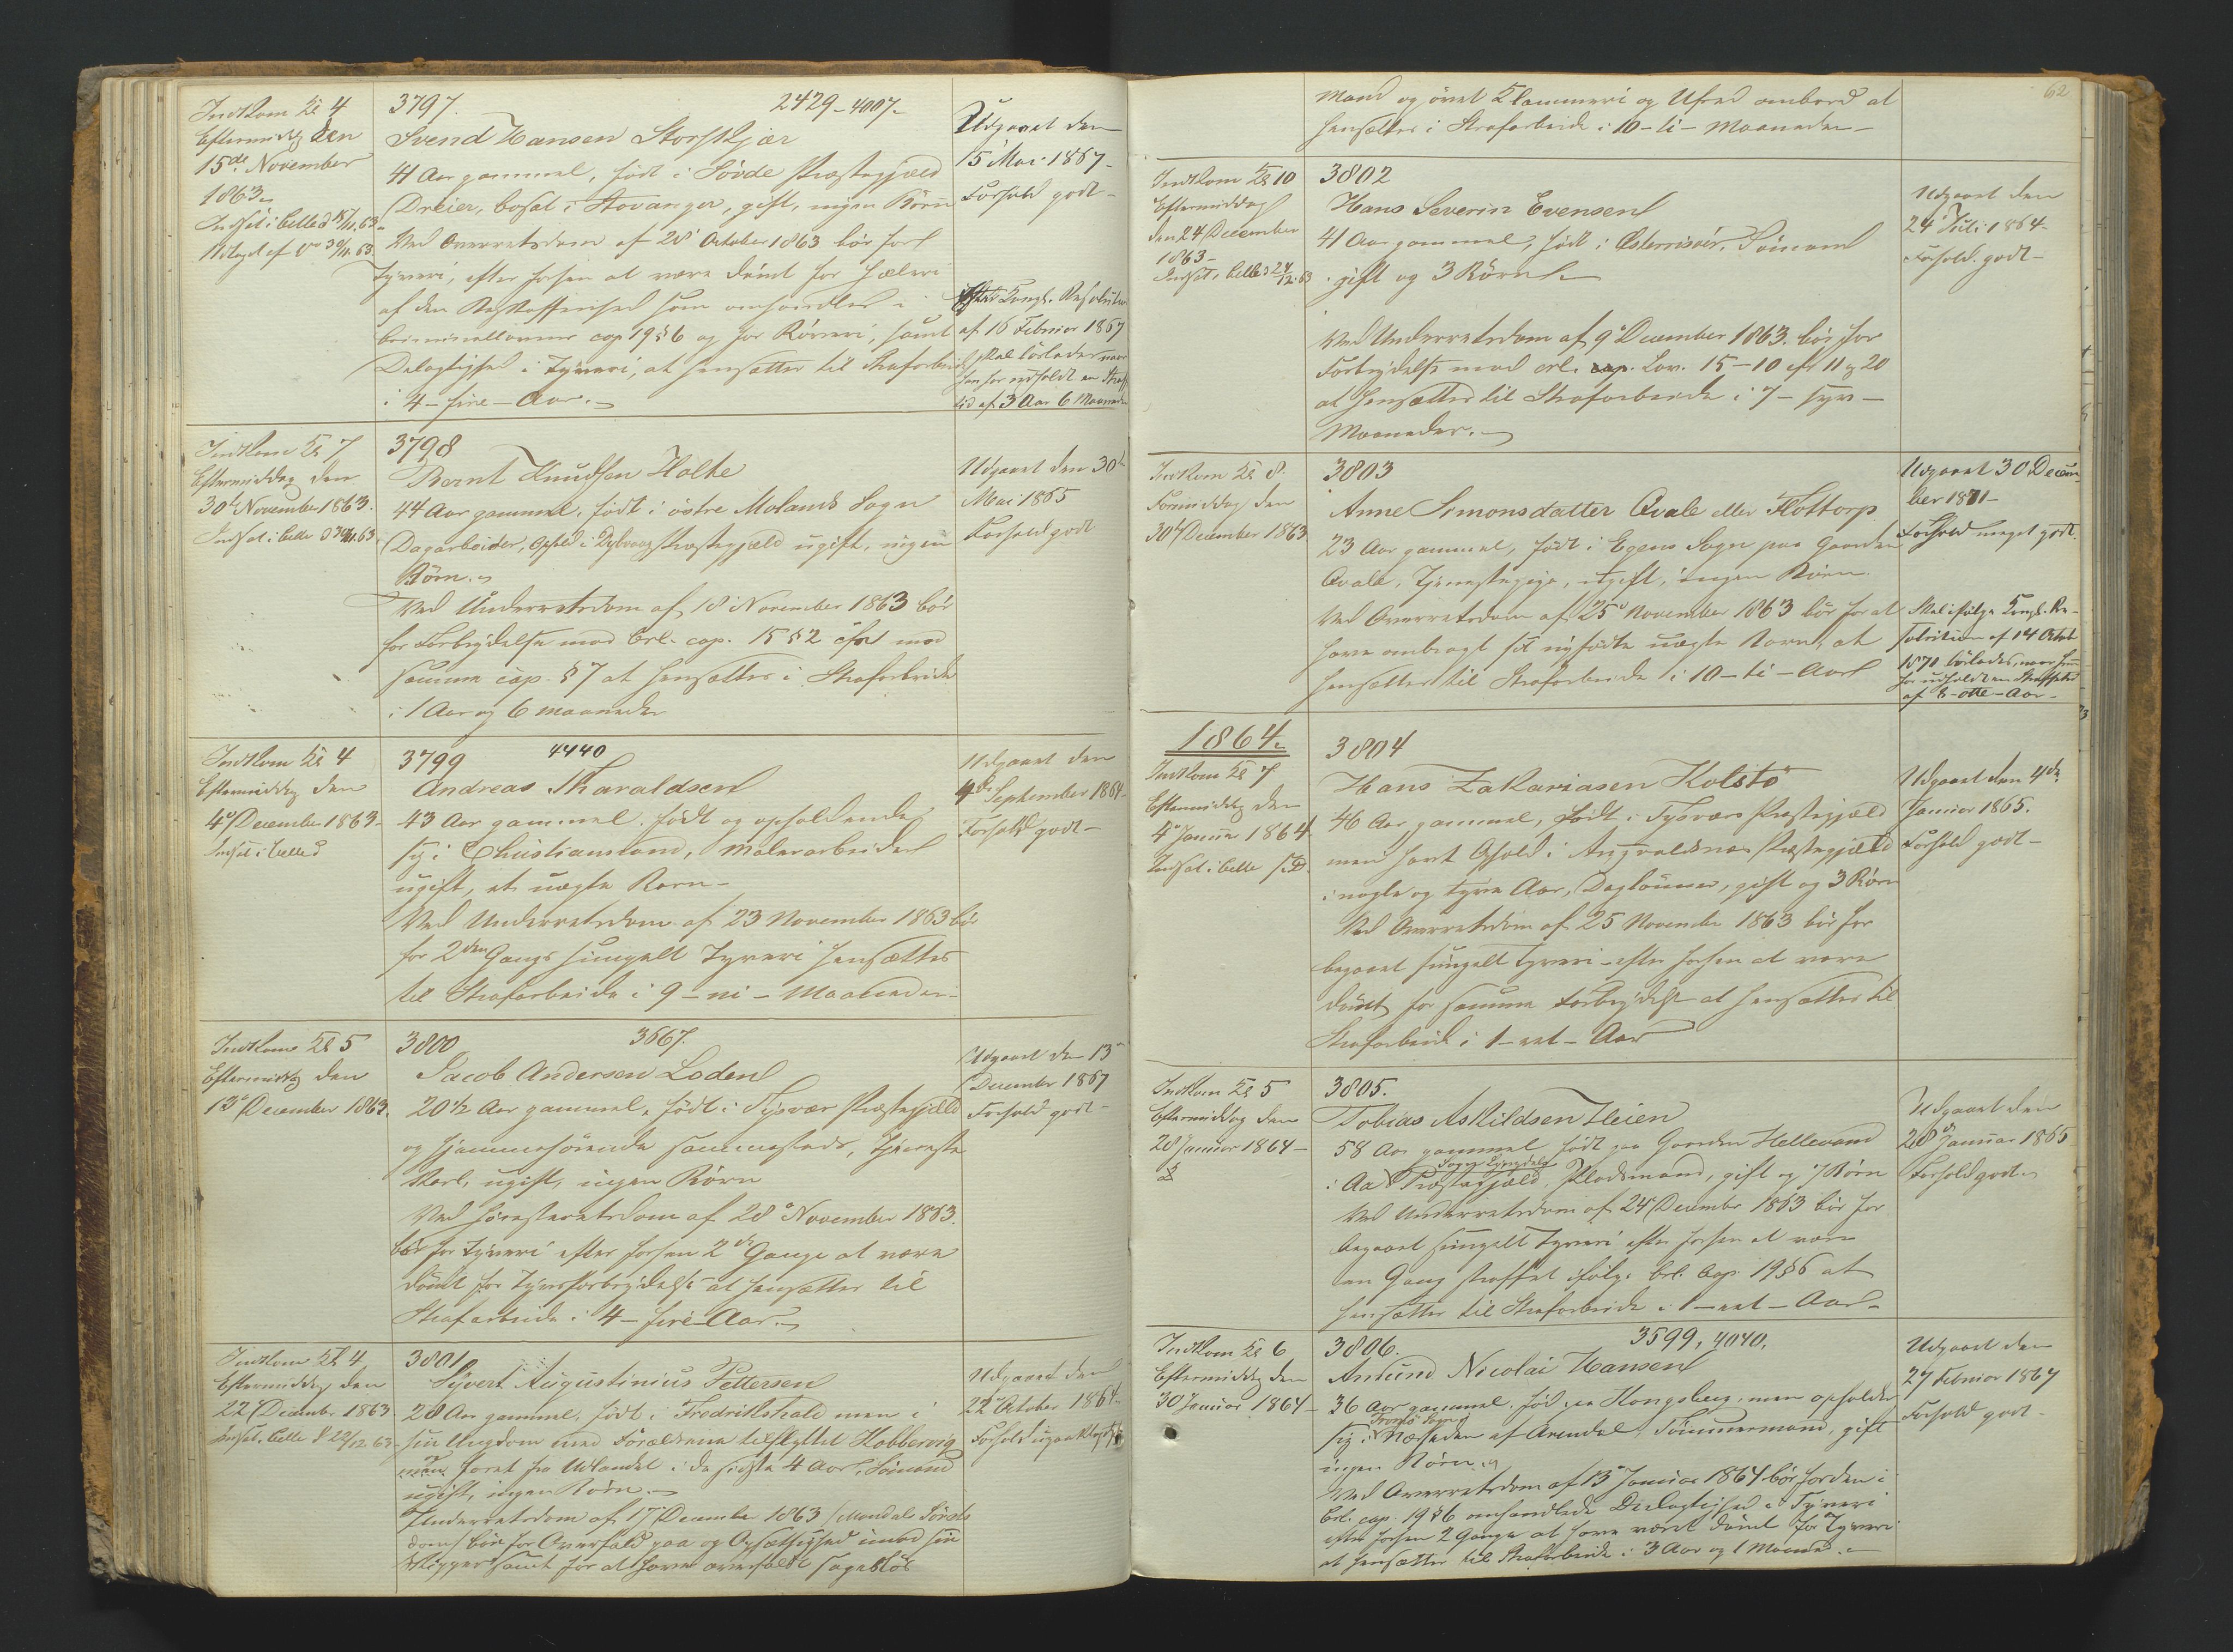 Indkom Kl 4
Eftermiddag den
15de November
1863.
Indsat i Celle d 15/11.63.
Udtaget af do 30/11.63
3797. 2429-4007-
Svend Hansen Storskjær
41 Aar gammel, født i Søvde Præstegjæld
Dreier, bosat i Stavanger, gift, ingen Børn
Ved Overretsdom af 28 October 1863 bör for
Tyveri, efter forhen at være dömt for Hæleri
af den Beskaffenhed som omhandles i
Criminallovens cap 19 § 6 og for Röveri, samt
Delagtighed i Tyveri, at hensættes til Strafarbeide
i 4 - fire - Aar.
Udgaaet den
15 Mai 1867-
Forhold godt-
Kongl. Resolution
af 16 Februar 1867
skal løslades naar
han har udholdt en Straf
tid af 3 Aar 6 Maaneder
Indkom Kl 7
Eftermiddag den
30te November 1863.
Indsat i Celle d 30/11.63
3798
Bernt Knudsen Holte
44 Aar gammel, født i östre Molands Sogn
Dagarbeider, Ophold i Dybvaag Præstegjæld ugift, ingen
Børn.
Ved Underretsdom af 18 November 1863 bör
for Forbrydelse mod Crl. cap. 15 § 2 cfr med
samme cap. § 7 at hensættes i Strafarbeide
i 1 Aar og 6 Maaneder
Udgaaet den 30te
Mai 1865
Forhold godt
Indkom Kl 4
Eftermiddag den
4de December 1863-
Indsat i Celle d
3799 4440
Andreas Tharaldsen
43 Aar gammel. født og opholdende
sig i Christiansand, Malerarbeider
ugift, et uægte Barn-
Ved Underretsdom af 23 November 1863 bör
for 2den Gangs simpelt Tyveri hensættes
til Strafarbeide i 9 - ni - Maaneder-
Udgaaet den
4de September 1864-
Forhold godt-
Indkom Kl 5
Eftermiddag den
13de December 1863.
3800 3667.
Jacob Andersen Loden
20 1/2 Aar gammel, født i Tysvær Præstegjæld
og hjemmehörende sammesteds, Tjeneste
Karl, ugift, ingen Børn
Ved Höiesteretsdom af 28 November 1863.
bör for Tyveri efter forhen 2de Gange at være
dömt for Tyvsforbrydelse at hensættes til
Strafarbeide i 4 - fire - Aar.
Udgaaet den 13de
December 1867
Forhold godt-
Indkom Kl 4
Eftermiddag den
22 December 1863
Indsat i Celle d 22/12 63-
3801
Syvert Augustinius Pettersen
28 Aar gammel, født i Fredrikshald men i
sin Ungdom med Forældrene tilflyttet Kobbervig
men faret fra Udlandet i de sidste 4 Aar, Sömand
ugift, ingen Børn.
Underretsdom af 17 December 1863 (Mandals Sörets
dom) bör for Overfald paa og Opsætsighed imod sin
Skipper samt for at have overfaldt sagesløs
Udgaaet den
22de October 1864-
Forhold upaaklageligt
62
Mand og övet Klammeri og Ufred ombord at
hensættes i Strafarbeide i 10 - ti - Maaneder-
Indkom Kl 10
Eftermiddag
den 24 December
1863-
Indsat i Celle d 24/12.63
3802
Hans Severin Evensen
41 Aar gammel, født i Østerrisöer, Sömand
gift og 3 Børn.
Ved Underretsdom af 9 December 1863. bör for
Forbrydelse mod crl. cap. Lov. 15-10 cfr 11 og 20
at hensættes til Strafarbeide i 7 - syv -
Maaneder.
Udgaaet den
24 Juli 1864-
Forhold godt-
Indkom Kl 8.
Formiddag den
30te December 1863
3803
Anne Simonsdatter Qvale eller Flottorp
23 Aar gammel, født i Egens Sogn paa Gaarden
Qvale, Tjenestepige, ugift, ingen Børn.
Ved Overretsdom af 25 November 1863 bör for at
have ombragt sit nyfødte uægte Barn, at
hensættes til Strafarbeide i 10 - ti - Aar
Udgaaet 30 Decem
ber 1871-
Forhold meget godt.
Skal ifølge Kongl. Re-
solution af 14 Octob
1871 løslades, naar hun
har udholdt en Straffetid
af 8 - otte - Aar-
1864.
Indkom Kl 7
Eftermiddag den
4de Januar 1864
Indsat i Celle s. D.
3804
Hans Zakariasen Kolstö
46 Aar gammel, født i Tysvær Præstegjæld
men havt Ophold i Augvaldsnæs Præstegjæld
i nogle og tyve Aar, Daglönner, gift og 3 Børn
Ved Overretsdom af 25 November 1863 bör for
begaaet simpelt Tyveri - efter forhen at være
dömt for samme Forbrydelse at hensættes til
Strafarbeide i 1 - eet - Aar
Udgaaet den 4de
Januar 1865.
Forhold godt-
Indkom Kl 5
Eftermiddag den
28 Januar 1864-
3805.
Tobias Askildsen Heien
58 Aar gammel født paa Gaarden Hellevand
Sogn Lyngdals
i Aa Præstegjæld, Pladsmand, gift og 7 Børn
Ved Underretsdom af 24 December 1863 bör for
begaaet simpelt Tyveri efter forhen at være
en Gang straffet ifølge Crl. Cap. 19 § 6 at
hensættes til Strafarbeide i 1 - eet - Aar-
Udgaaet den
28de Januar 1865
Forhold godt
Indkom Kl 6
Eftermiddag den
30 Januar 1864-
3806. 3599, 4040.
Amund Nicolai Hansen
36 Aar gammel. Fød paa Kongsberg, men opholder
Tromö Sogn
sig i Nærheden af Arendal, Tømmermand, gift
ingen Børn.
Ved Overretsdom af 13 Januar 1864 bör for den i
Crl. cap. 19 § 6 omhandlede Delagtighed i Tyveri
efter forhen 2 Gange at have været dömt for Tyveri
at hensættes til Strafarbeide i 3 Aar og 1 Maaned.
Udgaaet den
27 Februar 1867
Forhold godt-